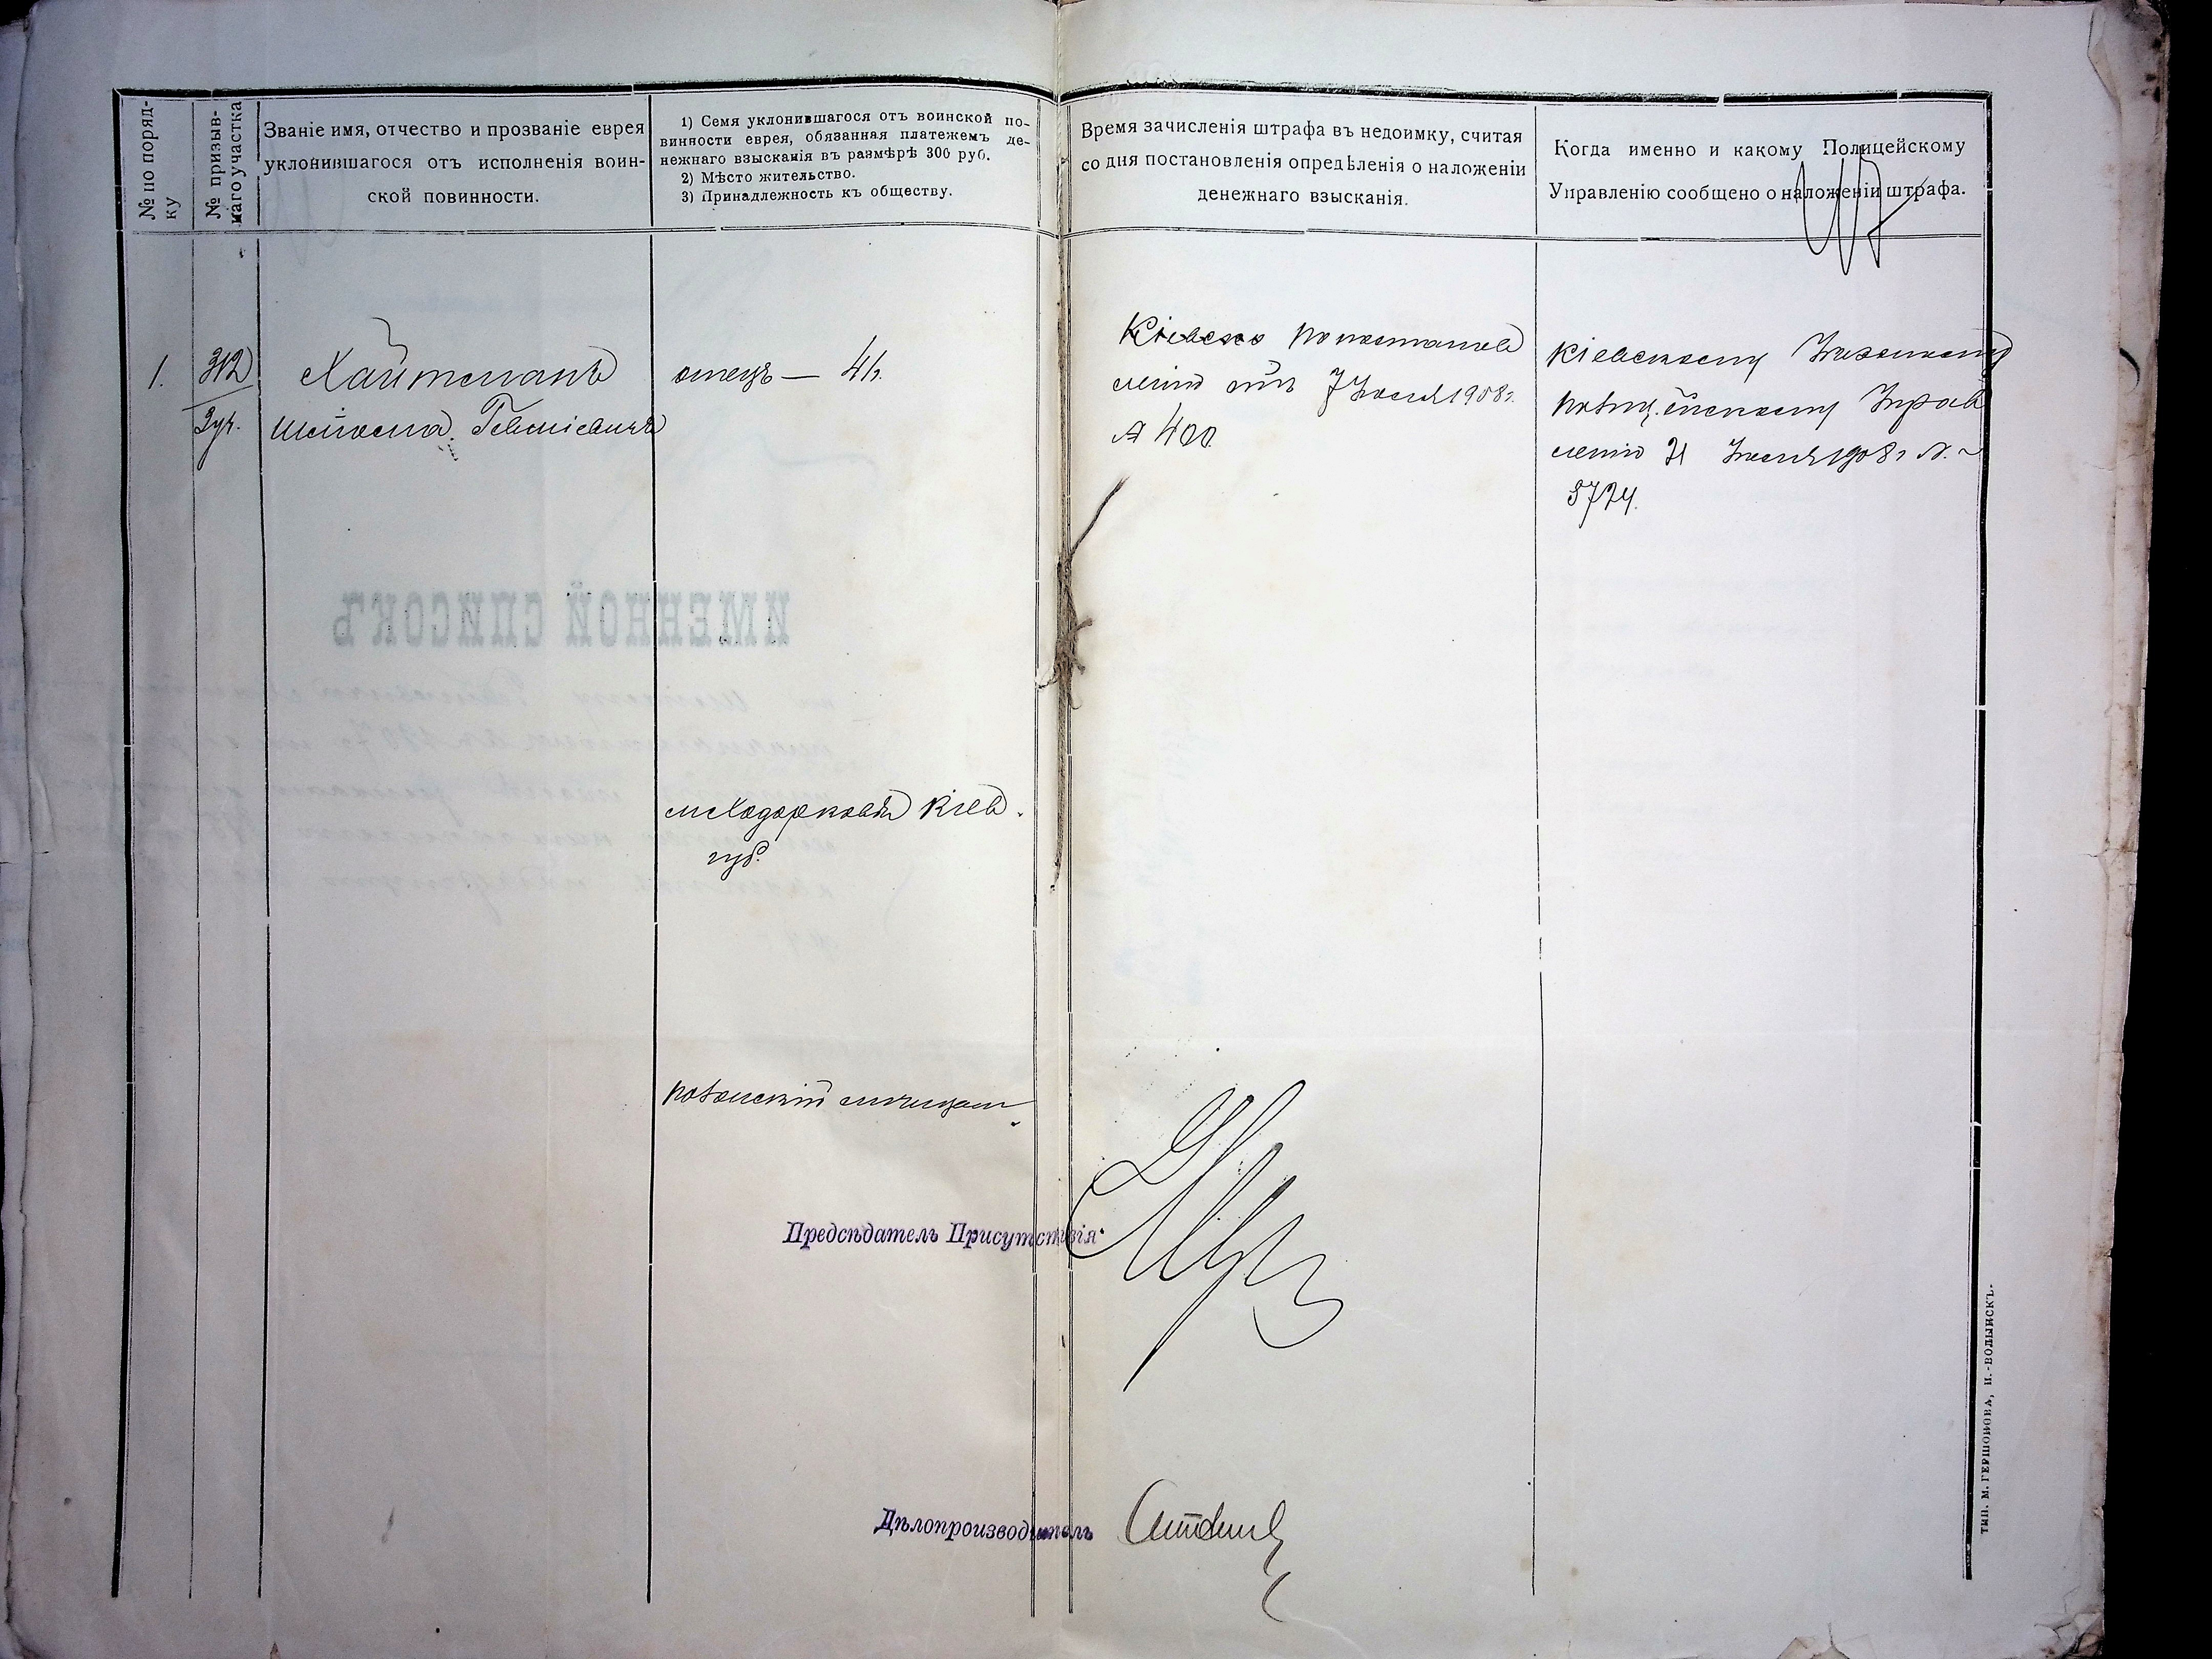 № по поряд-
ку
№ призыв-
наго участка
Званіе имя, отчество и прозваніе еврея
уклонившагося отъ исполненія воин-
ской повинности.
1) Семя уклонившагося отъ воинской по-
винности еврея, обязанная платежемъ де-
нежнаго взысканія въ размѣрѣ 300 руб.
2) Мѣсто жительство.
3) Принадлежность къ обществу.
Время зачисленія штрафа въ недоимку, считая
со дня постановленія опредѣленія о наложеніи
денежнаго взысканія.
Когда именно и какому Полицейскому
Управленію сообщено о наложеніи штрафа.
1.
312
3 уч.
Хайтманъ
отецъ —
по постанов
леніо отъ 7 Іюля 1908 г.
№ 400
Кіевскому Уѣздному
полиц.ейскому Управ
ленію 21 Іюля 1908 г №
3724.
ИМЕННОЙ СПИСОКЪ
м Ходорковъ Кіев.
губ.
мѣщан
Предсѣдатель Присутствія
Дѣлопроизводитель
ТИП. М. ГЕРШОНОВА, Н.-ВОЛЫНСКЪ.